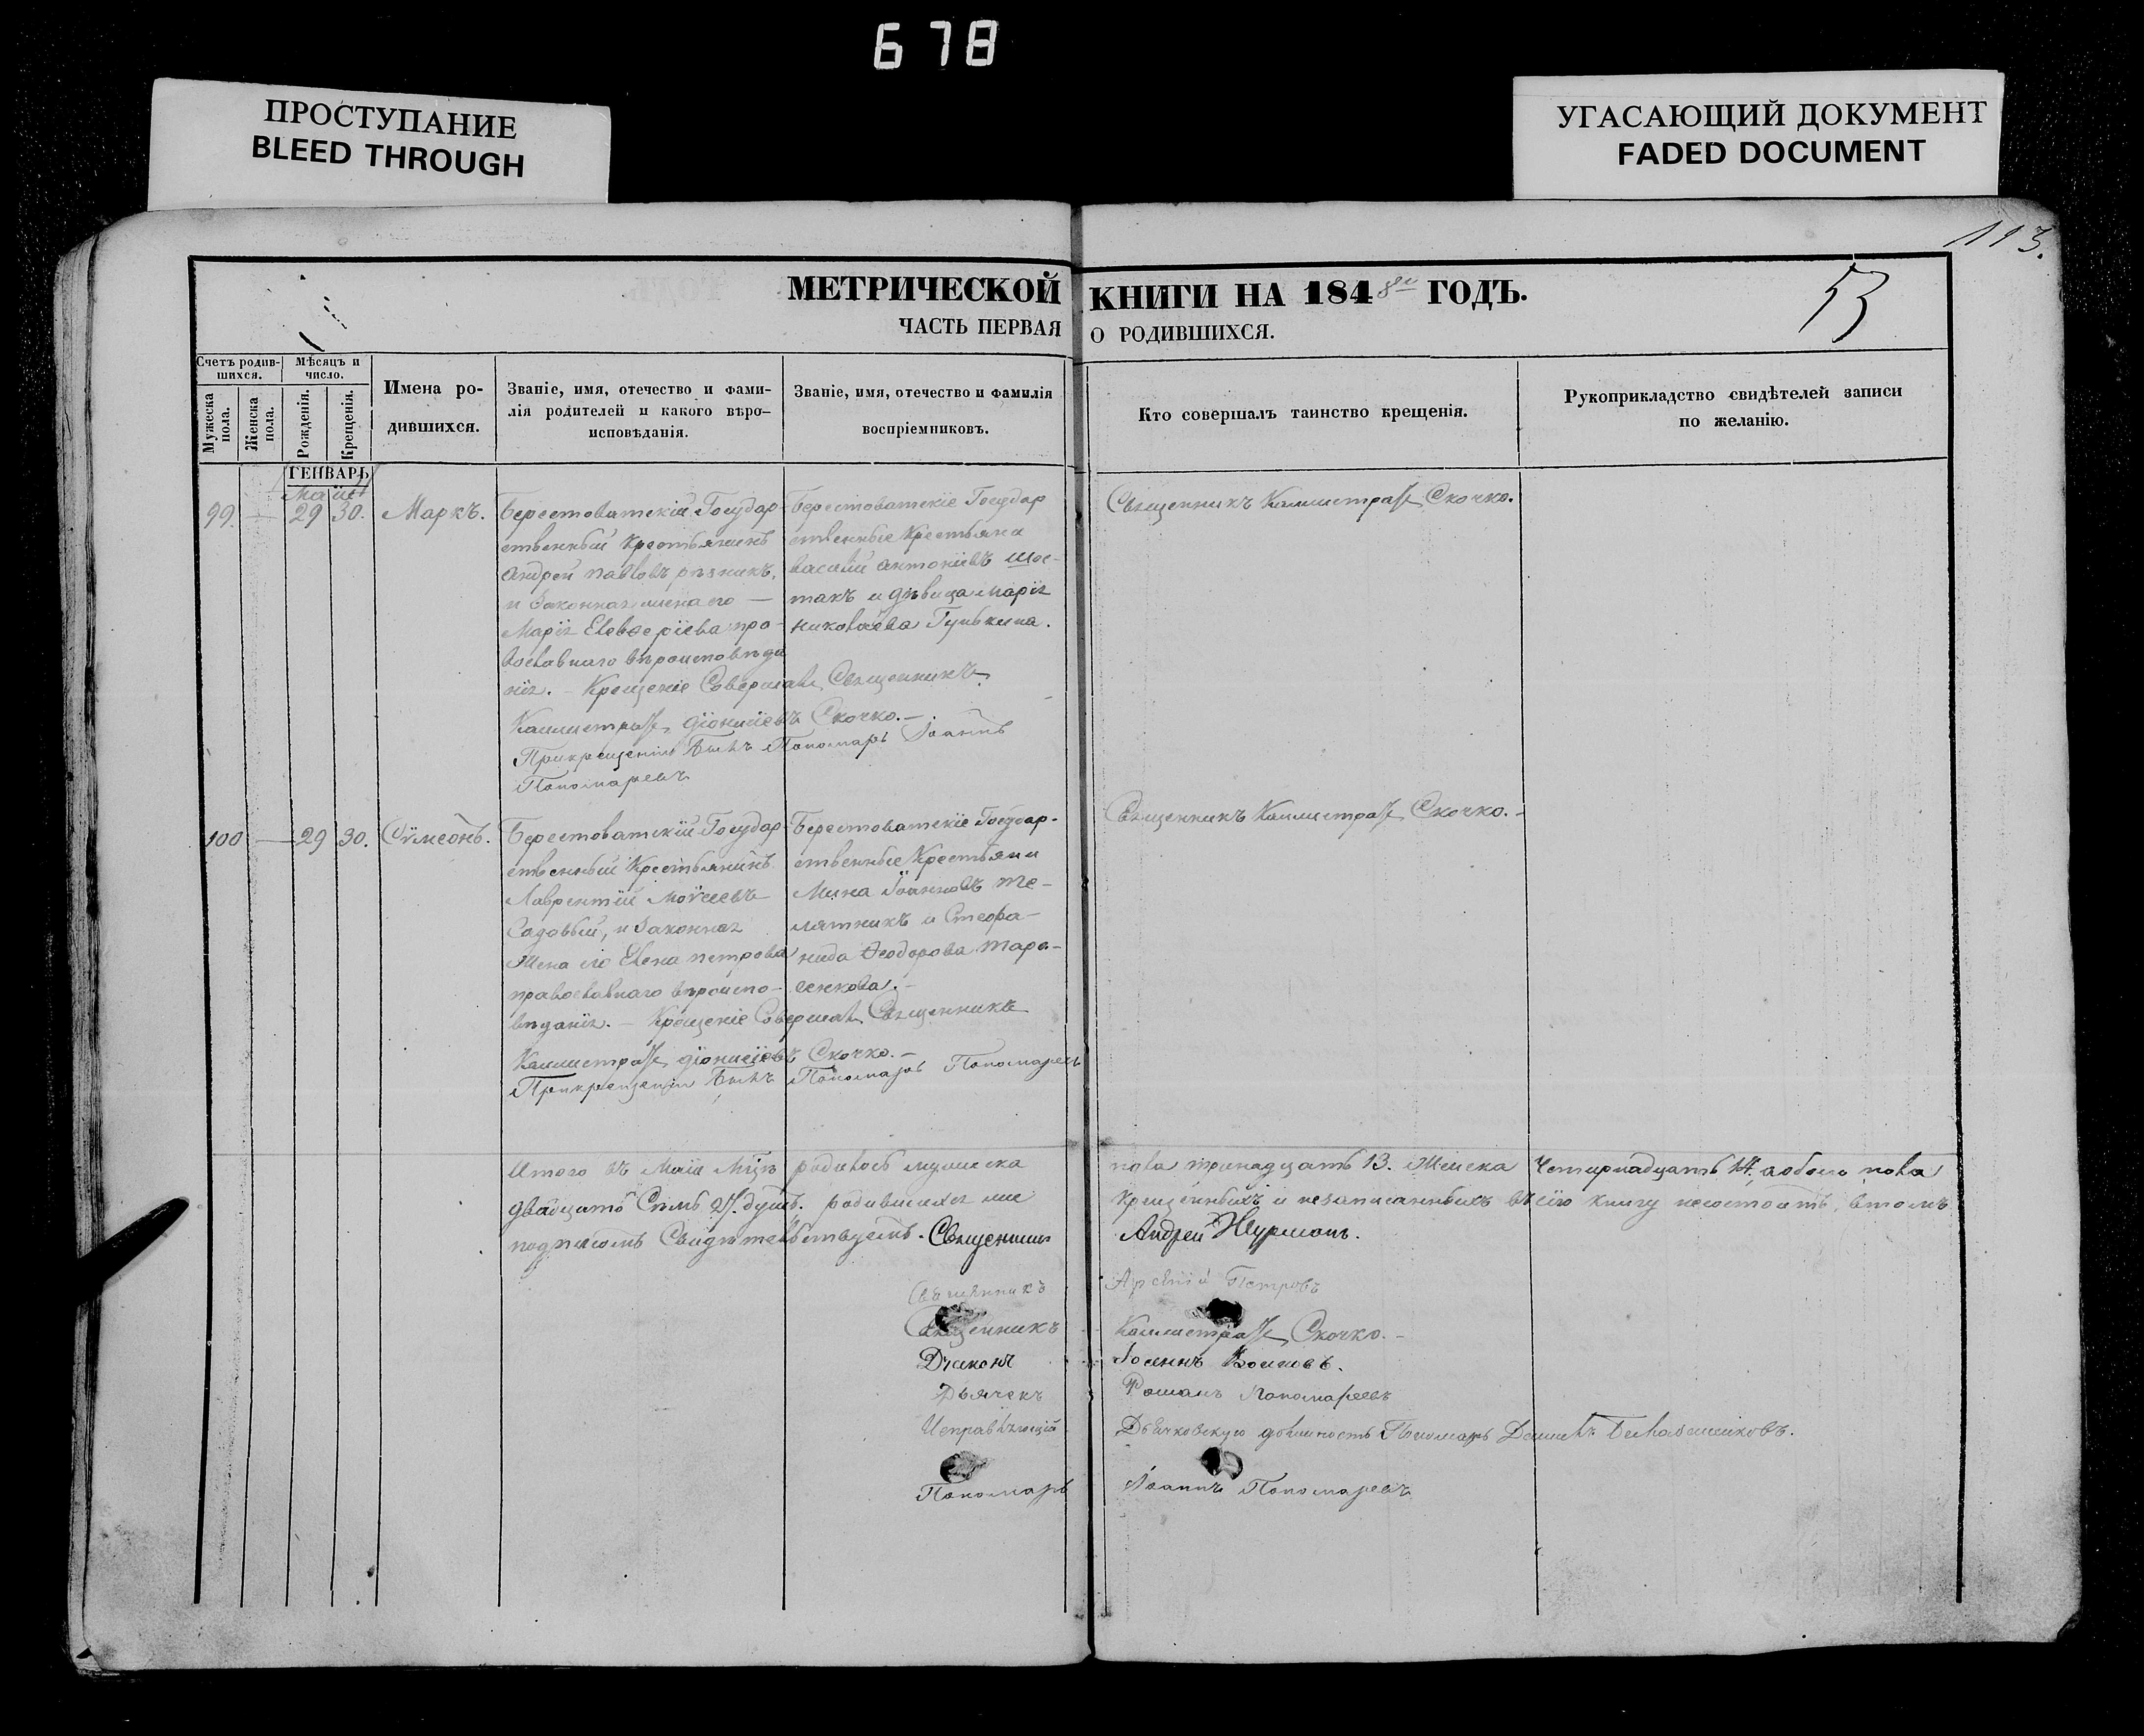 678
ПРОСТУПАНИЕ
BLEED THROUGH
УГАСАЮЩИЙ ДОКУМЕНТ
FADED DOCUMENT
113.
53
МЕТРИЧЕСКОЙ КНИГИ НА 1848й ГОДЪ.
ЧАСТЬ ПЕРВАЯ О РОДИВШИХСЯ.
Счетъ родив-
шихся.
Мужеска
пола.
Женска
пола.
Мѣсяцъ и
число.
Рожденія.
Крещенія.
Имена ро-
дившихся.
Званіе, имя, отечество и фами-
лія родителей и какого вѣро-
исповѣданія.
Званіе, имя, отечество и фамилія
воспріемниковъ.
Кто совершалъ таинство крещенія.
Рукоприкладство свидѣтелей записи
по желанію.
ГЕНВАРЬ
99. — 29 30. Маркъ.
Берестоватскій Государ-
ственный Крестьянинъ
Андрей Павловъ рѣзникъ,
и Законная жена его —
Марія Елевѳеріева пра-
вославнаго вѣроисповѣда
нія. – Крещеніе Совершалъ Священникъ
Каллистратъ Діонисіевъ Скочко. —
При крещеніи былъ Пономарь Іоаннъ
Пономаревъ
Берестоватскіе Государ
ственные Крестьяне
Василій Антоніевъ Шос-
такъ и дѣвица Марія
Николаева Гунькина.
Священникъ Каллистратъ Скочко.
100 — 29 30. Сѵмеонъ.
Берестоватскій Государ-
ственный Крестьянинъ
Лаврентій Моѵсеевъ
Садовый, и Законная
Жена его Елена Петрова
православнаго вѣроиспо-
вѣданія. – Крещеніе Совершалъ Священникъ
Каллистратъ Діонисіевъ Скочко. —
При крещеніи былъ Пономарь Пономаревъ
Берестоватскіе Государ-
ственные Крестьяни
Мина Іоанновъ Те-
лятникъ и Стефа-
нида Ѳеодорова Тара-
сенкова. –
Священникъ Каллистратъ Скочко. –
Итого въ Маіи Мцѣ родилось мужеска пола тринадцать 13. Женска Четырнадцать 14, а обоего пола
двадцать Семь 27. душъ. родившихся не крещенныхъ и незаписанныхъ въ сію книгу несостоитъ, втомъ
подписомъ Свидѣтельствуемъ. Священникъ Андрей
Священникъ Арсеній Петровъ
Священникъ Каллистратъ Скочко. –
Діаконъ Іоаннъ
Дьячекъ Романъ Пономаревъ
Исправляющій Дьячковскую должность Пономарь
Пономарь Іоаннъ Пономаревъ